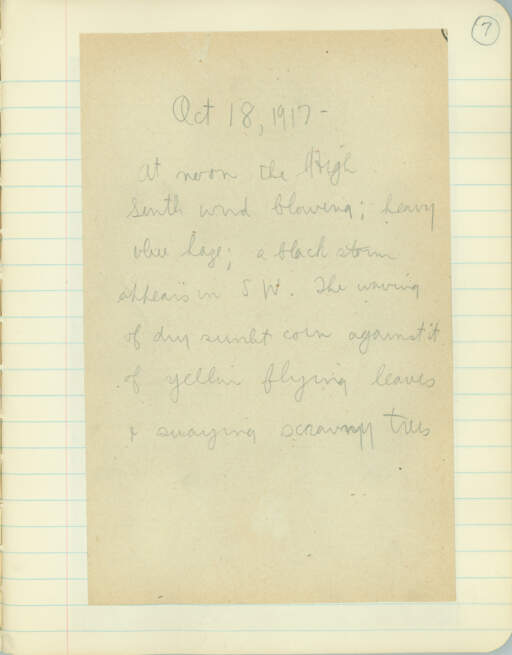 7
Oct 18, 1917 -
At noon the High
South wind blowing; heavy
blue haze; a black storm
appears in S W. The waving
of dry sunlit corn against it
of yellow flying leaves
& swaying scrawny trees